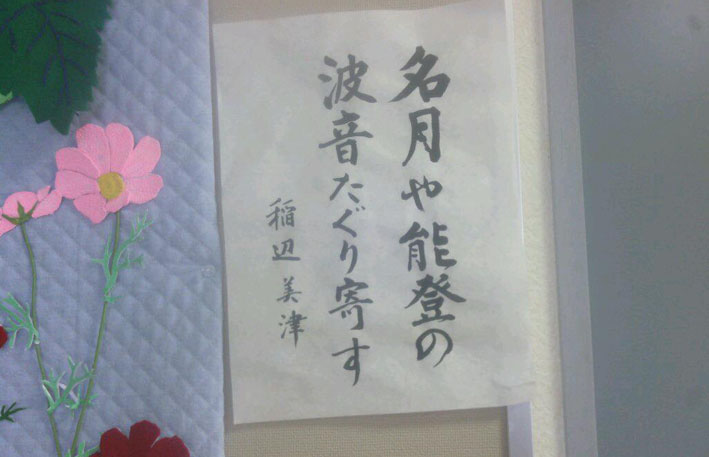 名月や能登の
波音たぐり寄す
稲辺美津